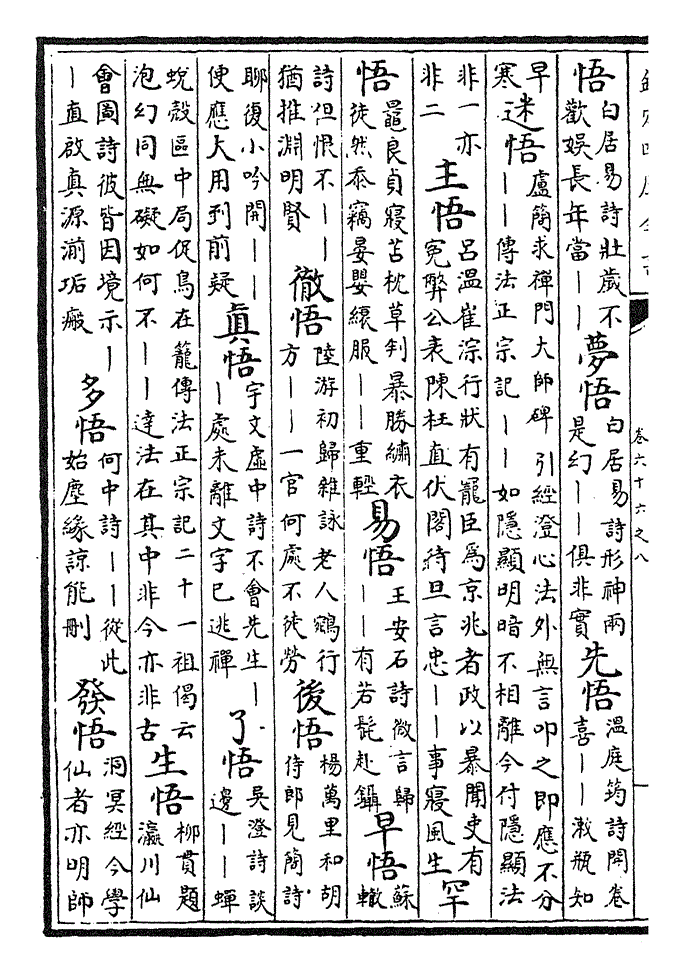 欽定四庫全書
卷六十六之八
悟 白居易詩壯歲不歡娛長年當丨丨 夢悟 白居易詩形神兩是幻丨丨俱非實 先悟 溫庭筠詩開卷喜丨丨漱瓶知
早寒 迷悟 盧簡求禪門大師碑引經澄心法外無言叩之即應不分丨丨傳法正宗記丨丨如隱顯明暗不相離今付隱顯法
非一亦非二 主悟 呂溫崔淙行狀有寵臣為京兆者政以暴聞吏有寃弊公表陳枉直伏閤待旦言忠丨丨事寢風生 罕
悟 鼂良貞寢苫枕草判暴勝繡衣徒然忝竊晏嬰縗服丨丨重輕 易悟 王安石詩微言歸丨丨有若髡赴鑷 早悟 蘇轍
詩但恨不丨丨猶推淵明賢 徹悟 陸游初歸雜詠老人鵷行方丨丨一官何處不徒勞 後悟 楊萬里和胡侍郎見簡詩
聊復小吟開丨丨使應大用到前疑 眞悟 宇文虛中詩不會先生丨丨處未離文字已逃禪 了悟 吳澄詩談邊丨丨蟬
蛻殼區中局促鳥在籠傳法正宗記二十一祖偈云泡幻同無礙如何不丨丨達法在其中非今亦非古 生悟 柳貫題瀛川仙
會圖詩彼皆因境示丨丨直啟真源湔垢廠 多悟 何中詩丨丨從此始塵緣諒能刪 發悟 洞冥經今學仙者亦明師